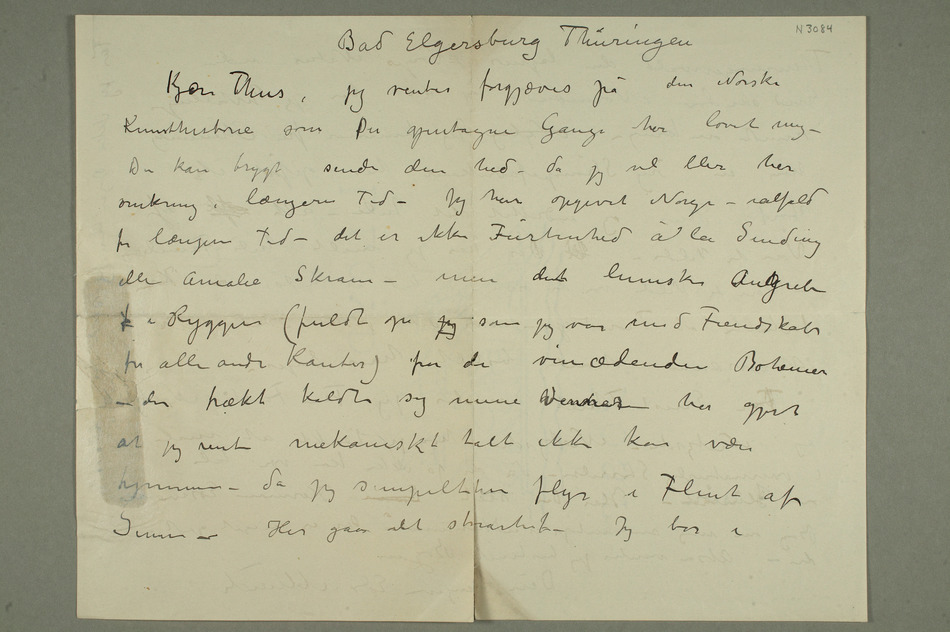 N 3084
Bad Elgersburg Thüringen
Kjære Thiis, jeg venter forgjæves på den Norske
Kunsthistorie som Du gjentagne Gange har lovet mig –
Du kan trygt sende den hid – da jeg vel blir her
omkring i længere Tid – Jeg har opgivet Norge – ialfald
for længere Tid – det er ikke Fürtenhed à la Sinding
eller Amalie Skram – men det lumske Angreb
i Ryggen (fuldt op jeg som jeg var med Fiendskab
fra alle andre Kanter) fra de vinædende Bohemer
– der frækt kaldte sig mine Venner har gjort
at jeg rent mekanisk talt ikke kan være
hjemme – da jeg simpelthen flyr i Flint af
Sinne – Her gaar det storartet – Jeg bor i